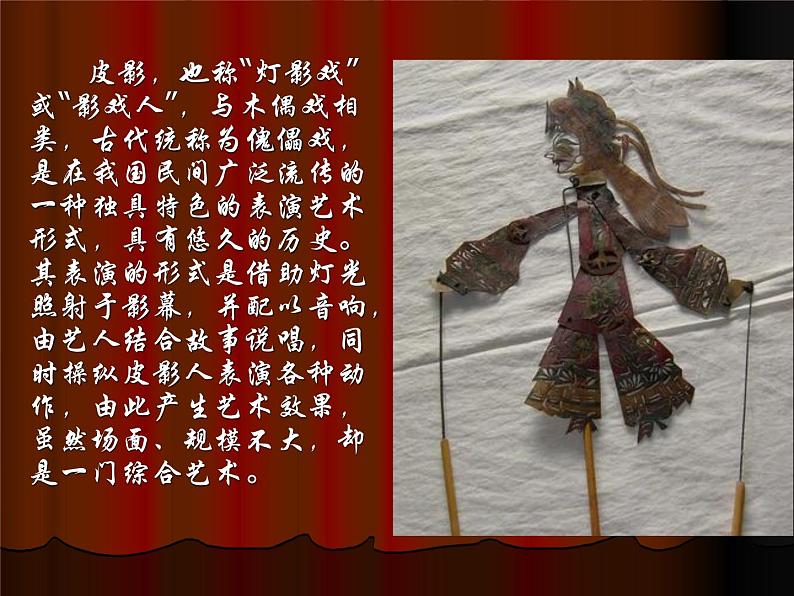 皮影，也称“灯影戏”
或“影戏人”，与木偶戏相
类，古代统称为傀儡戏，
是在我国民间广泛流传的
一种独具特色的表演艺术
形式，具有悠久的历史。
其表演的形式是借助灯光
照射于影幕，并配以音响，
由艺人结合故事说唱，同
时操纵皮影人表演各种动
作，由此产生艺术效果，
虽然场面、规模不大，却
是一门综合艺术。